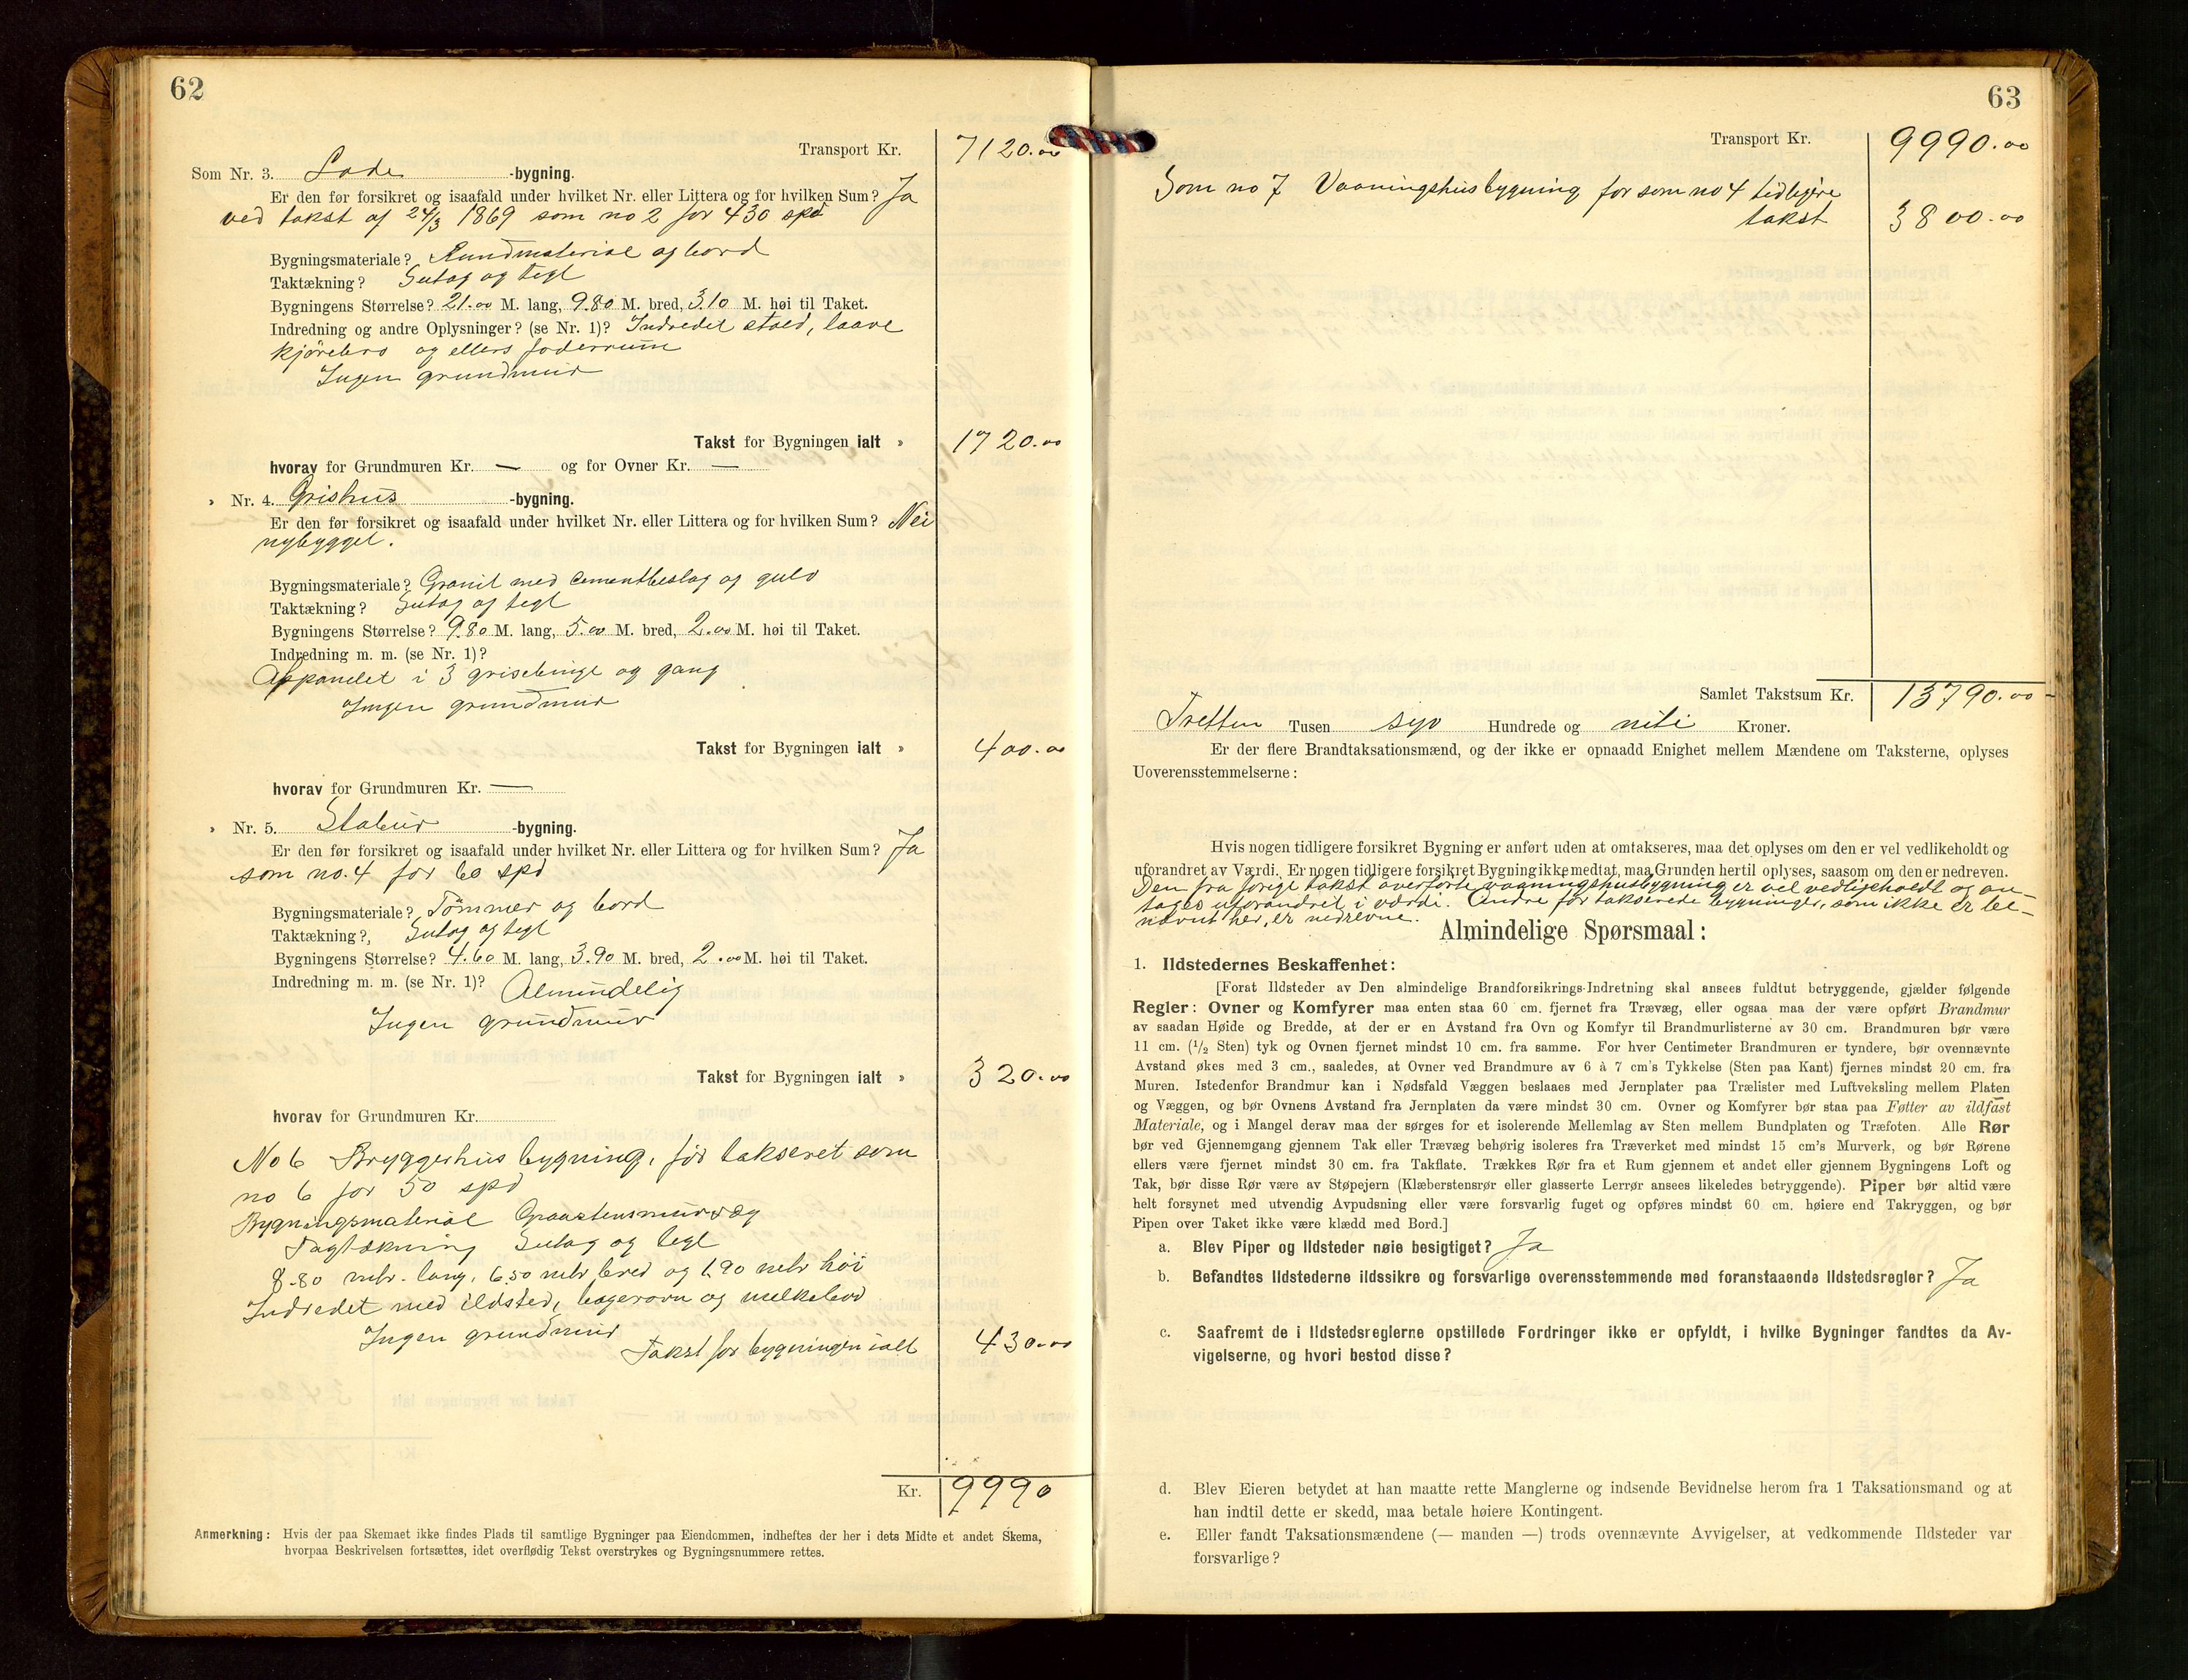 62
Transport Kr. 7120.00
Som Nr. 3. Lade -bygning.
Er den før forsikret og isaafald under hvilket Nr. eller Littera og for hvilken Sum? Ja
ved takst af 24/3 1869 som no 2 for 430 spd
Bygningsmateriale? Rundmateriale og bord
Taktækning? Sutag og tegl
Bygningens Størrelse? 21.00 M. lang, 9.80 M. bred, 3.10 M. høi til Taket.
Indredning og andre Oplysninger? (se Nr. 1)? Indredet stald, laave
kjørebro og ellers foderrum
Ingen grundmur
Takst for Bygningen ialt » 1720.00
hvorav for Grundmuren Kr. — og for Ovner Kr. —
» Nr. 4. Grishus -bygning.
Er den før forsikret og isaafald under hvilket Nr. eller Littera og for hvilken Sum? Nei
nybygget.
Bygningsmateriale? Granit med cementbeslag og gulv
Taktækning? Sutag og tegl
Bygningens Størrelse? 9.80 M. lang, 5.00 M. bred, 2.00 M. høi til Taket.
Indredning m. m. (se Nr. 1)?
Afpanelet i 3 grisebinge og gang
Ingen grundmur
Takst for Bygningen ialt » 400.00
hvorav for Grundmuren Kr. —
» Nr. 5. Stabur -bygning.
Er den før forsikret og isaafald under hvilket Nr. eller Littera og for hvilken Sum? Ja
som no. 4 for 60 spd
Bygningsmateriale? Tømmer og bord
Taktækning?, Sutag og tegl
Bygningens Størrelse? 4.60 M. lang, 3.90 M. bred, 2.00 M. høi til Taket.
Indredning m. m. (se Nr. 1)? Almindelig
Ingen grundmur
Takst for Bygningen ialt » 320.00
hvorav for Grundmuren Kr.
No 6 Bryggerhus bygning, før takseret som
no 6 for 50 spd
Bygningsmaterial Graastensmurvæg
Tagtækning Sutag og tegl
8.80 mtr. lang, 6.50 mtr bred og 1.90 mtr høi
Indredet med ildsted, bagerovn og melkebod
Ingen grundmur
Takst for bygningen ialt 430.00
Kr. 9990
Anmerkning: Hvis der paa Skemaet ikke findes Plads til samtlige Bygninger paa Eiendommen, indheftes der her i dets Midte et andet Skema,
hvorpaa Beskrivelsen fortsættes, idet overflødig Tekst overstrykes og Bygningsnummere rettes.
63
Transport Kr. 9990.00
Som no 7 Vaaningshusbygning for som no 4 tidligere
takst 3800.00
Samlet Takstsum Kr. 13790.00
Tretten Tusen syv Hundrede og niti Kroner.
Er der flere Brandtaksationsmænd, og der ikke er opnaadd Enighet mellem Mændene om Taksterne, oplyses
Uoverensstemmelserne:
Hvis nogen tidligere forsikret Bygning er anført uden at omtakseres, maa det oplyses om den er vel vedlikeholdt og
uforandret av Værdi. Er nogen tidligere forsikret Bygning ikke medtat, maa Grunden hertil oplyses, saasom om den er nedreven.
Den fra forige takst overførte vaaningshusbygning er vel vedligeholdt og an-
tages uforandret i værdi. Andre før takserede bygninger, som ikke er be-
nævnt her, er nedrevne.
Almindelige Spørsmaal:
1. Ildstedernes Beskaffenhet:
[Forat Ildsteder av Den almindelige Brandforsikrings-Indretning skal ansees fuldtut betryggende, gjælder følgende
Regler: Ovner og Komfyrer maa enten staa 60 cm. fjernet fra Trævæg, eller ogsaa maa der være opført Brandmur
av saadan Høide og Bredde, at der er en Avstand fra Ovn og Komfyr til Brandmurlisterne av 30 cm. Brandmuren bør være
11 cm. (1/2 Sten) tyk og Ovnen fjernet mindst 10 cm. fra samme. For hver Centimeter Brandmuren er tyndere, bør ovennævnte
Avstand økes med 3 cm., saaledes, at Ovner ved Brandmure av 6 à 7 cm's Tykkelse (Sten paa Kant) fjernes mindst 20 cm. fra
Muren. Istedenfor Brandmur kan i Nødsfald Væggen beslaaes med Jernplater paa Trælister med Luftveksling mellem Platen
og Væggen, og bør Ovnens Avstand fra Jernplaten da være mindst 30 cm. Ovner og Komfyrer bør staa paa Føtter av ildfast
Materiale, og i Mangel derav maa der sørges for et isolerende Mellemlag av Sten mellem Bundplaten og Træfoten. Alle Rør
bør ved Gjennemgang gjennem Tak eller Trævæg behørig isoleres fra Træverket med mindst 15 cm's Murverk, og bør Rørene
ellers være fjernet mindst 30 cm. fra Takflate. Trækkes Rør fra et Rum gjennem et andet eller gjennem Bygningens Loft og
Tak, bør disse Rør være av Støpejern (Klæberstensrør eller glasserte Lerrør ansees likeledes betryggende). Piper bør altid være
helt forsynet med utvendig Avpudsning eller være forsvarlig fuget og opføres mindst 60 cm. høiere end Takryggen, og bør
Pipen over Taket ikke være klædd med Bord.]
a. Blev Piper og Ildsteder nøie besigtiget? Ja
b. Befandtes Ildstederne ildssikre og forsvarlige overensstemmende med foranstaaende Ildstedsregler? Ja
c. Saafremt de i Ildstedsreglerne opstillede Fordringer ikke er opfyldt, i hvilke Bygninger fandtes da Av-
vigelserne, og hvori bestod disse?
d. Blev Eieren betydet at han maatte rette Manglerne og indsende Bevidnelse herom fra 1 Taksationsmand og at
han indtil dette er skedd, maa betale høiere Kontingent.
e. Eller fandt Taksationsmændene (— manden —) trods ovennævnte Avvigelser, at vedkommende Ildsteder var
forsvarlige?